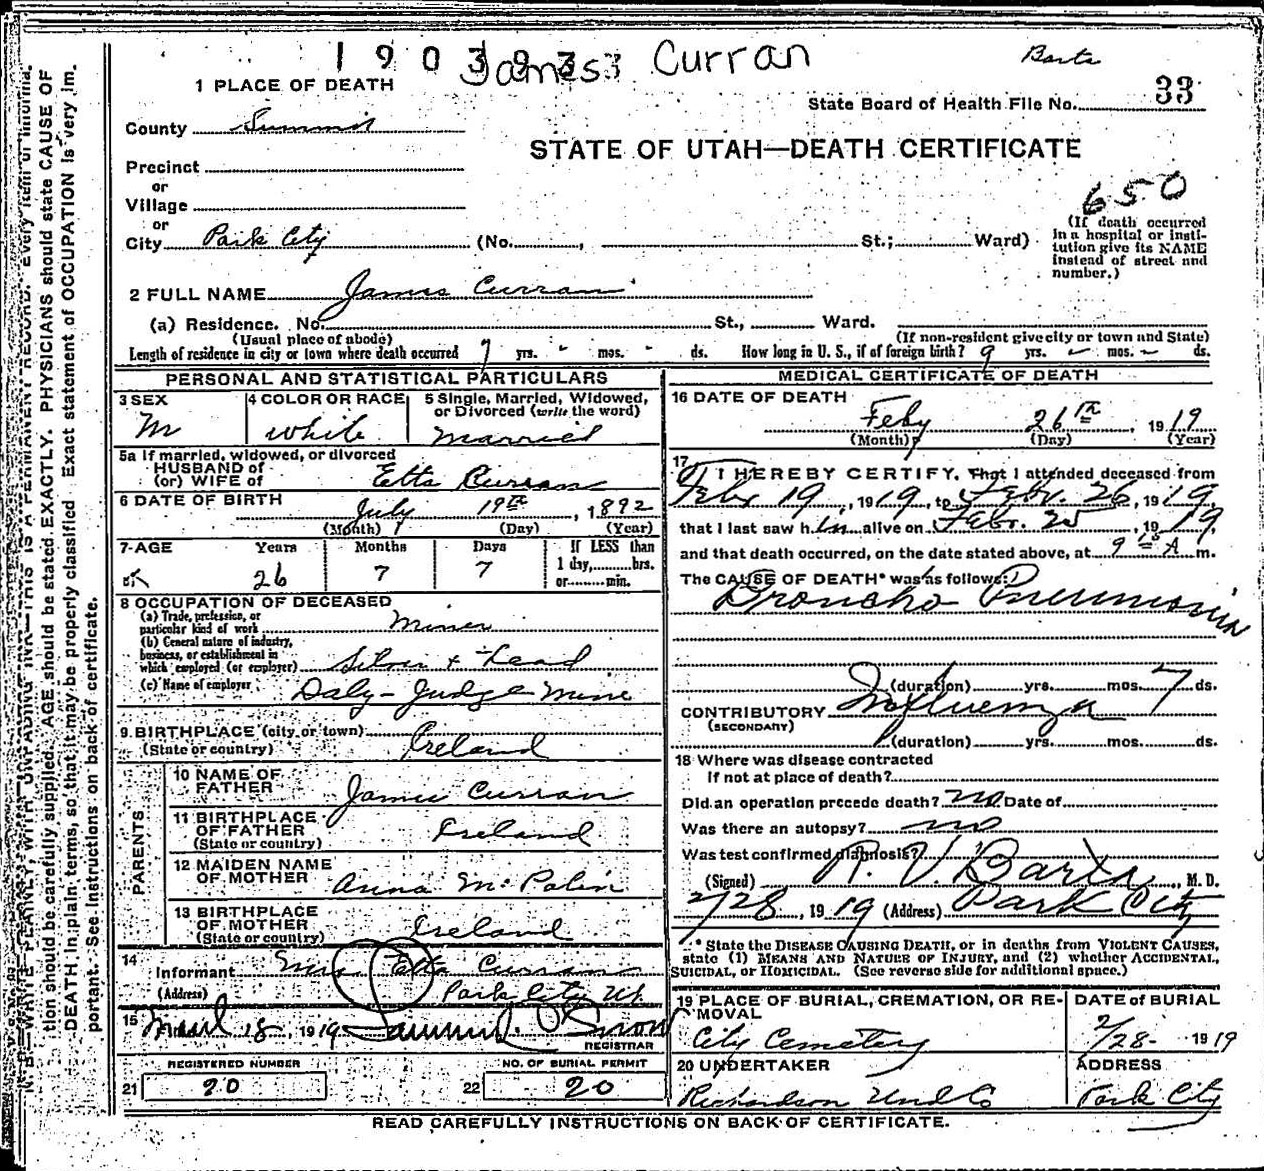 1903973 James Curran
Barta
33
1 PLACE OF DEATH
State Board of Health File No.
County Summit
STATE OF UTAH—DEATH CERTIFICATE
Precinct
or
Village
or
650
City Park City (No. , St.; Ward)
(If death occurred in a hospital or institution give its NAME instead of street and number.)
2 FULL NAME James Curran
(a) Residence. No. St., Ward.
(Usual place of abode) (If non-resident give city or town and State)
Length of residence in city or town where death occurred 7 yrs. - mos. - ds. How long in U. S., if of foreign birth? 9 yrs. - mos. - ds.
PERSONAL AND STATISTICAL PARTICULARS
3 SEX M
4 COLOR OR RACE White
5 Single, Married, Widowed, or Divorced (write the word) Married
5a If married, widowed, or divorced
HUSBAND of
(or) WIFE of Etta Curran
6 DATE OF BIRTH July 19th, 1892
(Month) (Day) (Year)
7-AGE Years 26 Months 7 Days 7 If LESS than 1 day, hrs. or min.
8 OCCUPATION OF DECEASED
(a) Trade, profession, or particular kind of work Miner
(b) General nature of industry, business, or establishment in which employed (or employer) Silver + Lead
(c) Name of employer Daly-Judge Mine
9 BIRTHPLACE (city or town)
(State or country) Ireland
PARENTS
10 NAME OF FATHER James Curran
11 BIRTHPLACE OF FATHER (State or country) Ireland
12 MAIDEN NAME OF MOTHER Anna McPolin
13 BIRTHPLACE OF MOTHER (State or country) Ireland
14 Informant Mrs Etta Curran
(Address) Park City Ut.
15 18, 1919
REGISTRAR
REGISTERED NUMBER NO. OF BURIAL PERMIT
21 20 22 20
MEDICAL CERTIFICATE OF DEATH
16 DATE OF DEATH
Feby 26th, 1919
(Month) (Day) (Year)
17 I HEREBY CERTIFY, That I attended deceased from
Feby 19, 1919, to Feby. 26, 1919
that I last saw him alive on Feby. 25, 1919.
and that death occurred, on the date stated above, at 9 15 A m.
The CAUSE OF DEATH* was as follows:
Broncho Pneumonia
(duration) yrs. mos. 7 ds.
CONTRIBUTORY Influenza
(SECONDARY)
(duration) yrs. mos. ds.
18 Where was disease contracted
If not at place of death?
Did an operation precede death? no Date of
Was there an autopsy? no
Was test confirmed diagnosis?
(Signed) R. V. Barta, M. D.
2/28, 1919 (Address) Park City
* State the DISEASE CAUSING DEATH, or in deaths from VIOLENT CAUSES, state (1) MEANS AND NATURE OF INJURY, and (2) whether ACCIDENTAL, SUICIDAL, or HOMICIDAL. (See reverse side for additional space.)
19 PLACE OF BURIAL, CREMATION, OR REMOVAL
City Cemetery
DATE of BURIAL
2/28- 1919
20 UNDERTAKER
Richardson Und Co
ADDRESS
Park City
READ CAREFULLY INSTRUCTIONS ON BACK OF CERTIFICATE.
tion should be carefully supplied. AGE should be stated EXACTLY. PHYSICIANS should state CAUSE OF
DEATH in plain terms, so that it may be properly classified. Exact statement of OCCUPATION is very im-
portant. See instructions on back of certificate.